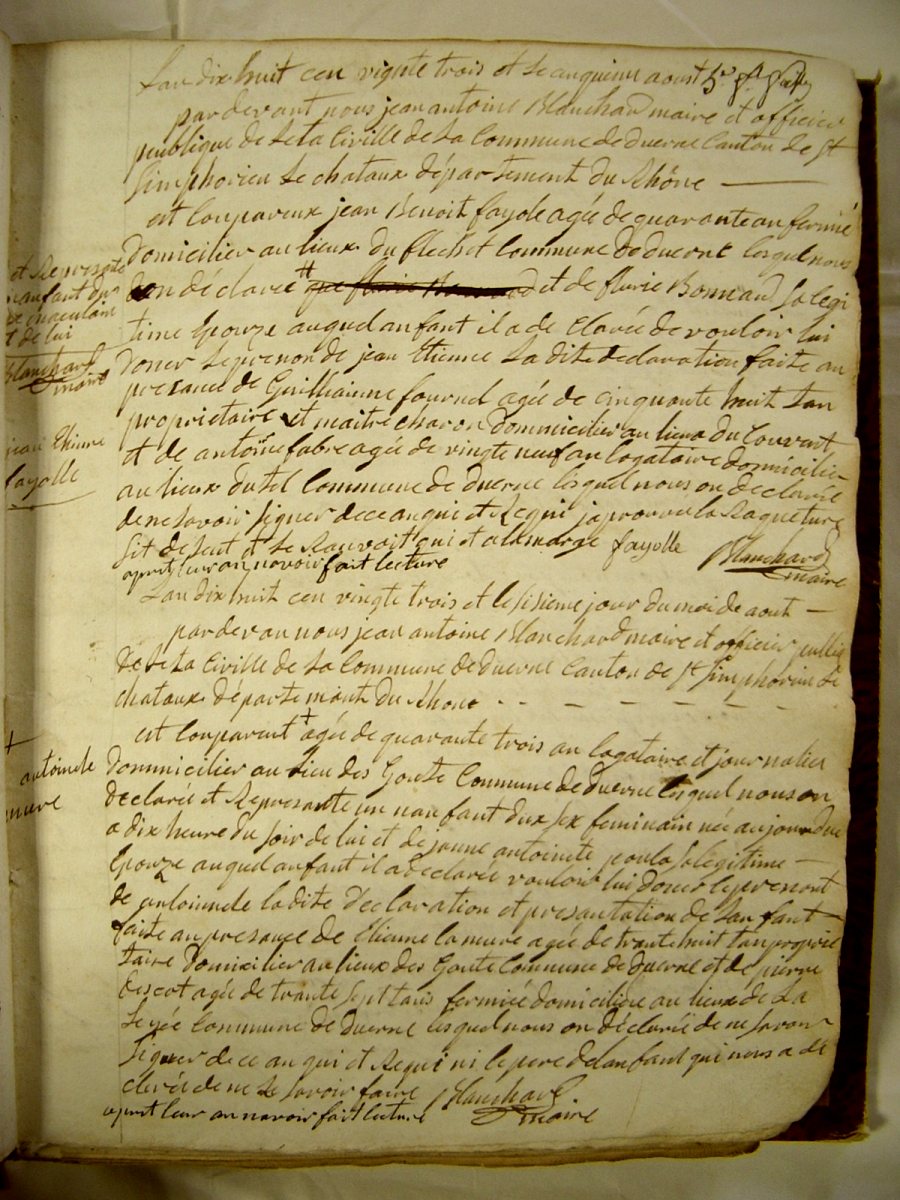 Lan dix huit cen vignte trois et le cinquieme aoust
par devant nous jean antoine Blanchard maire et officier
peublique de Leta Civille de La Commune de duerne Canton de St
Simphorien Le chataux département du Rhône
est Compareux jean Benoit fayole agée de quarante an fermié
Domicilier au lieux du flechet Commune de duerne lesquel nous
on déclarée # que flurie Bonnard et de flurie Bonnard sa legi
time Epouze auquel anfant il a de Clarée de vouloir lui
doner Le prenon de jean Etienne La dite declaration faite an
presance de Guilhaume fournel agée de cinquante huit tan
proprietaire et maitre charon domnicilier au lieux du Couvert
et de antoine fabre agée de vingte neuf an logataire domicilie
au lieux du Sol Commune de duerne lesquel nous on declarée
de ne savoir signer de ce anquit et Requi japrouve la Raqueture
sit desut et le Ranvoit qui et a la marge fayolle Blanchard
maire
aprest leur an navoir fait lecture
et Represanté
jean Etienne
fayolle
Blanchard
maire
Lan dix huit cen vingte trois et le sisieme jour du moi de aout
par devan nous jean antoine Blanchard maire et officier publie
dé Le ta Civille de La Commune de duerne Canton de St Simphorien Le
chataux département du Rhone
est Comparent + agée de quarante trois an logataire et journalier
Domnicilier au lieu des Goute Commune de duerne lesquel nous on
declarée et Represante un nanfant dux sex feminain née aujourdue
a dix heure du soir de lui et de jeanne antoinete poula sa legitime
Epouze auquel anfant il a declarée vouloir lui doner le prenont
de antoinnete la dite déclaration et presantation de Lanfant
faite an presance de Etienne la mure agée de trante huit tan proprie
taire domicilier au lieux des Goute Commune de duerne et de pierre
Bescot agée de trante sept tans fermiée domicilière au lieux de La
Commune de duerne lesquel nous on déclarée de ne savoir
signer de ce an qui et Requi ni le pere de lanfant qui nous a dé
clarée de ne le savoir faire Blanchard
aprest leur an navoir fait lecture maire
+
antoinete